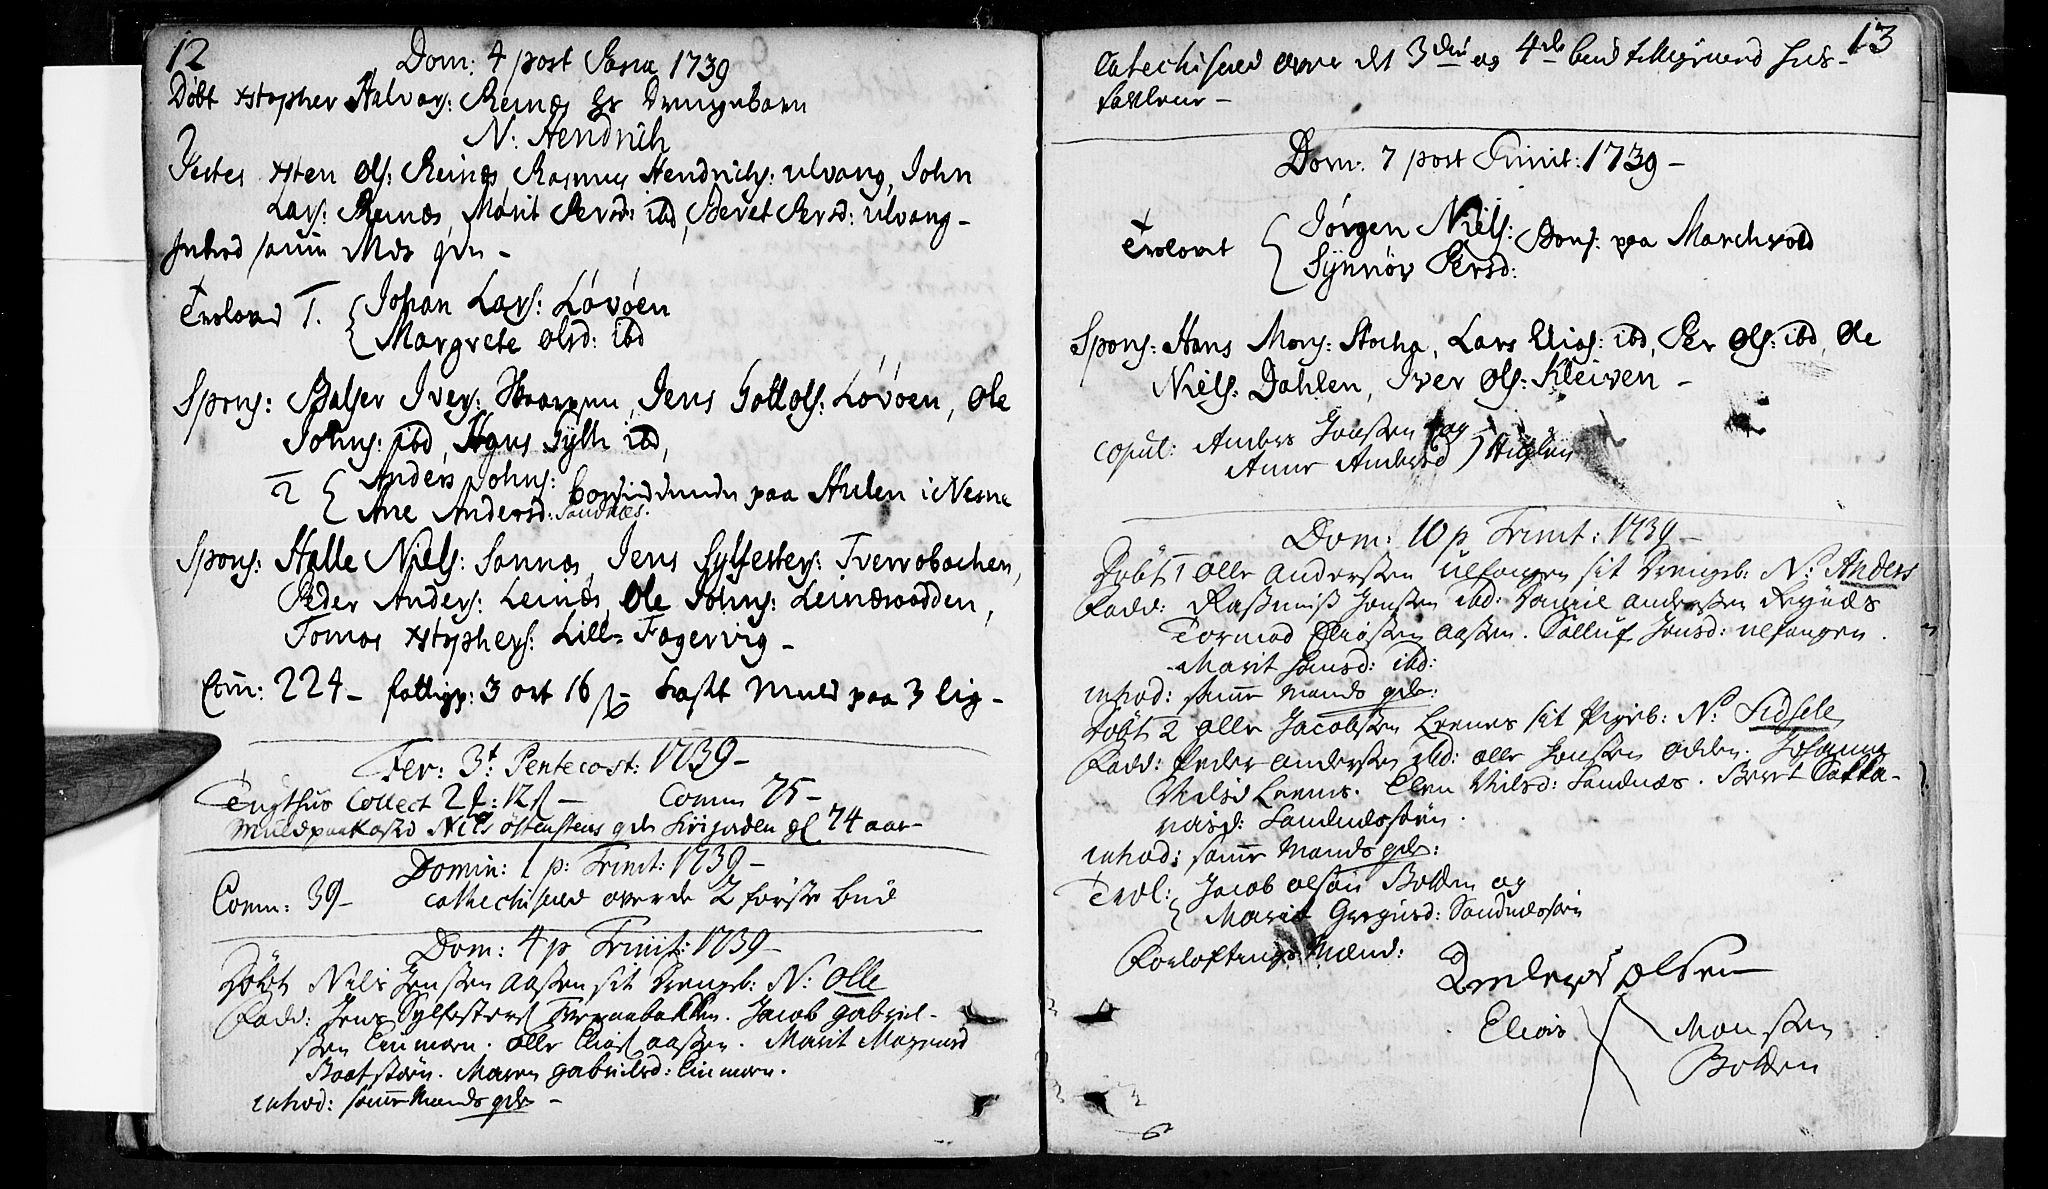 12
Dom: 4 post Pasca 1739
Døbt xstopher Halvors: Reinæs hs Drengebarn
N: Hendrich
Testes xsten Ols: Reinæs, Rasmus Hendrichs: ulvang, John
Lars: Reinæs, Marit Persd: ibd, Beret Persd: ulvang -
Introd samme Mds qde -
Troloved 1. Johan Lars: Løvøen
Margrete Olsd: ibd
Spons: Balser Ivers: Jens Tollofs: Løvøen, Ole
Johns: ibd, Hans Sylt ibd,
2 Anders Johns: boesiddende paa Hulen i Nesne
Ane Andersd: Sandnæs.
Spons: Halle Niels: Sannæs, Jens Sylfesters: Tverrobachen,
Peder Anders: Leinæs, Ole Johns: Leinæsodden,
Tomas xstophers: Lill= Fagervig -
Com: 224 - fattigp: 3 ort 16 s - kast Muld paa 3 lig -
Fer: 3t Pentecost: 1739 -
Tugthus Collect 2 : 12 s - Comm 75 -
Muldpaakasted Nils Østenstens qde gl 74 aar -
Domin: 1 p: Trinit: 1739 -
Comm: 39 - cathechisered over de 2 første bud
Dom: 4 p Trinit: 1739 -
Døbt Nils Jenssen aassen sit Drengeb: N: Olle
Fadd: Jens Sylfesters Tveraabakken. Jacob gabriel-
ssen Einmoen. Olle Elias aassen. Marit Mogensd
Baatstøen. Maren gabrielsd: Einmoen.
introd: samme Mands qde -
13
Catechiseret over det 3die og 4de bud tilligemed Hus-
tavlene -
Dom: 7 post Trinit: 1739 -
Trolovet Jørgen Niels: Bons: paa Marchvold
Synnøv Persd:
Spons: Hans Mons: Stocha, Lars Elias: ibd, Per Ols: ibd, Ole
Niels: Dahlen, Iver Ols: Kleiven -
Copul: Anders Jonssen og
Anne Andersd Huglen
Dom: 10 p Trinit: 1739 -
Døbt 1 Olle Anderssen ulfangen sit Drengeb: N: Anders
Fadd: Rassmus Jonssen ibd: Anderssen Reynæs
Tormod Eliassen aassen. Jonsd: ulfangen.
Marit Jonsd: ibd:
introd: samme Mands qde:
Døbt 2 Olle Jacobssen Leenes sit Pigeb: N: Sidsele
Fadd: Peder Anderssen ibd: Olle Jonssen Odden. Johanna
Nilsd Leenes. Elen Nilsd: Sandnæs. Beret Sakka-
riasd: Sandnæsstøen.
introd: samme Mands qde:
Trol: Jacob Olsøn Bolden og
Marit Gregusd: Sandnæsstøen
Forloftings Mænd:
Olsen
Elias Monssen
Bolden